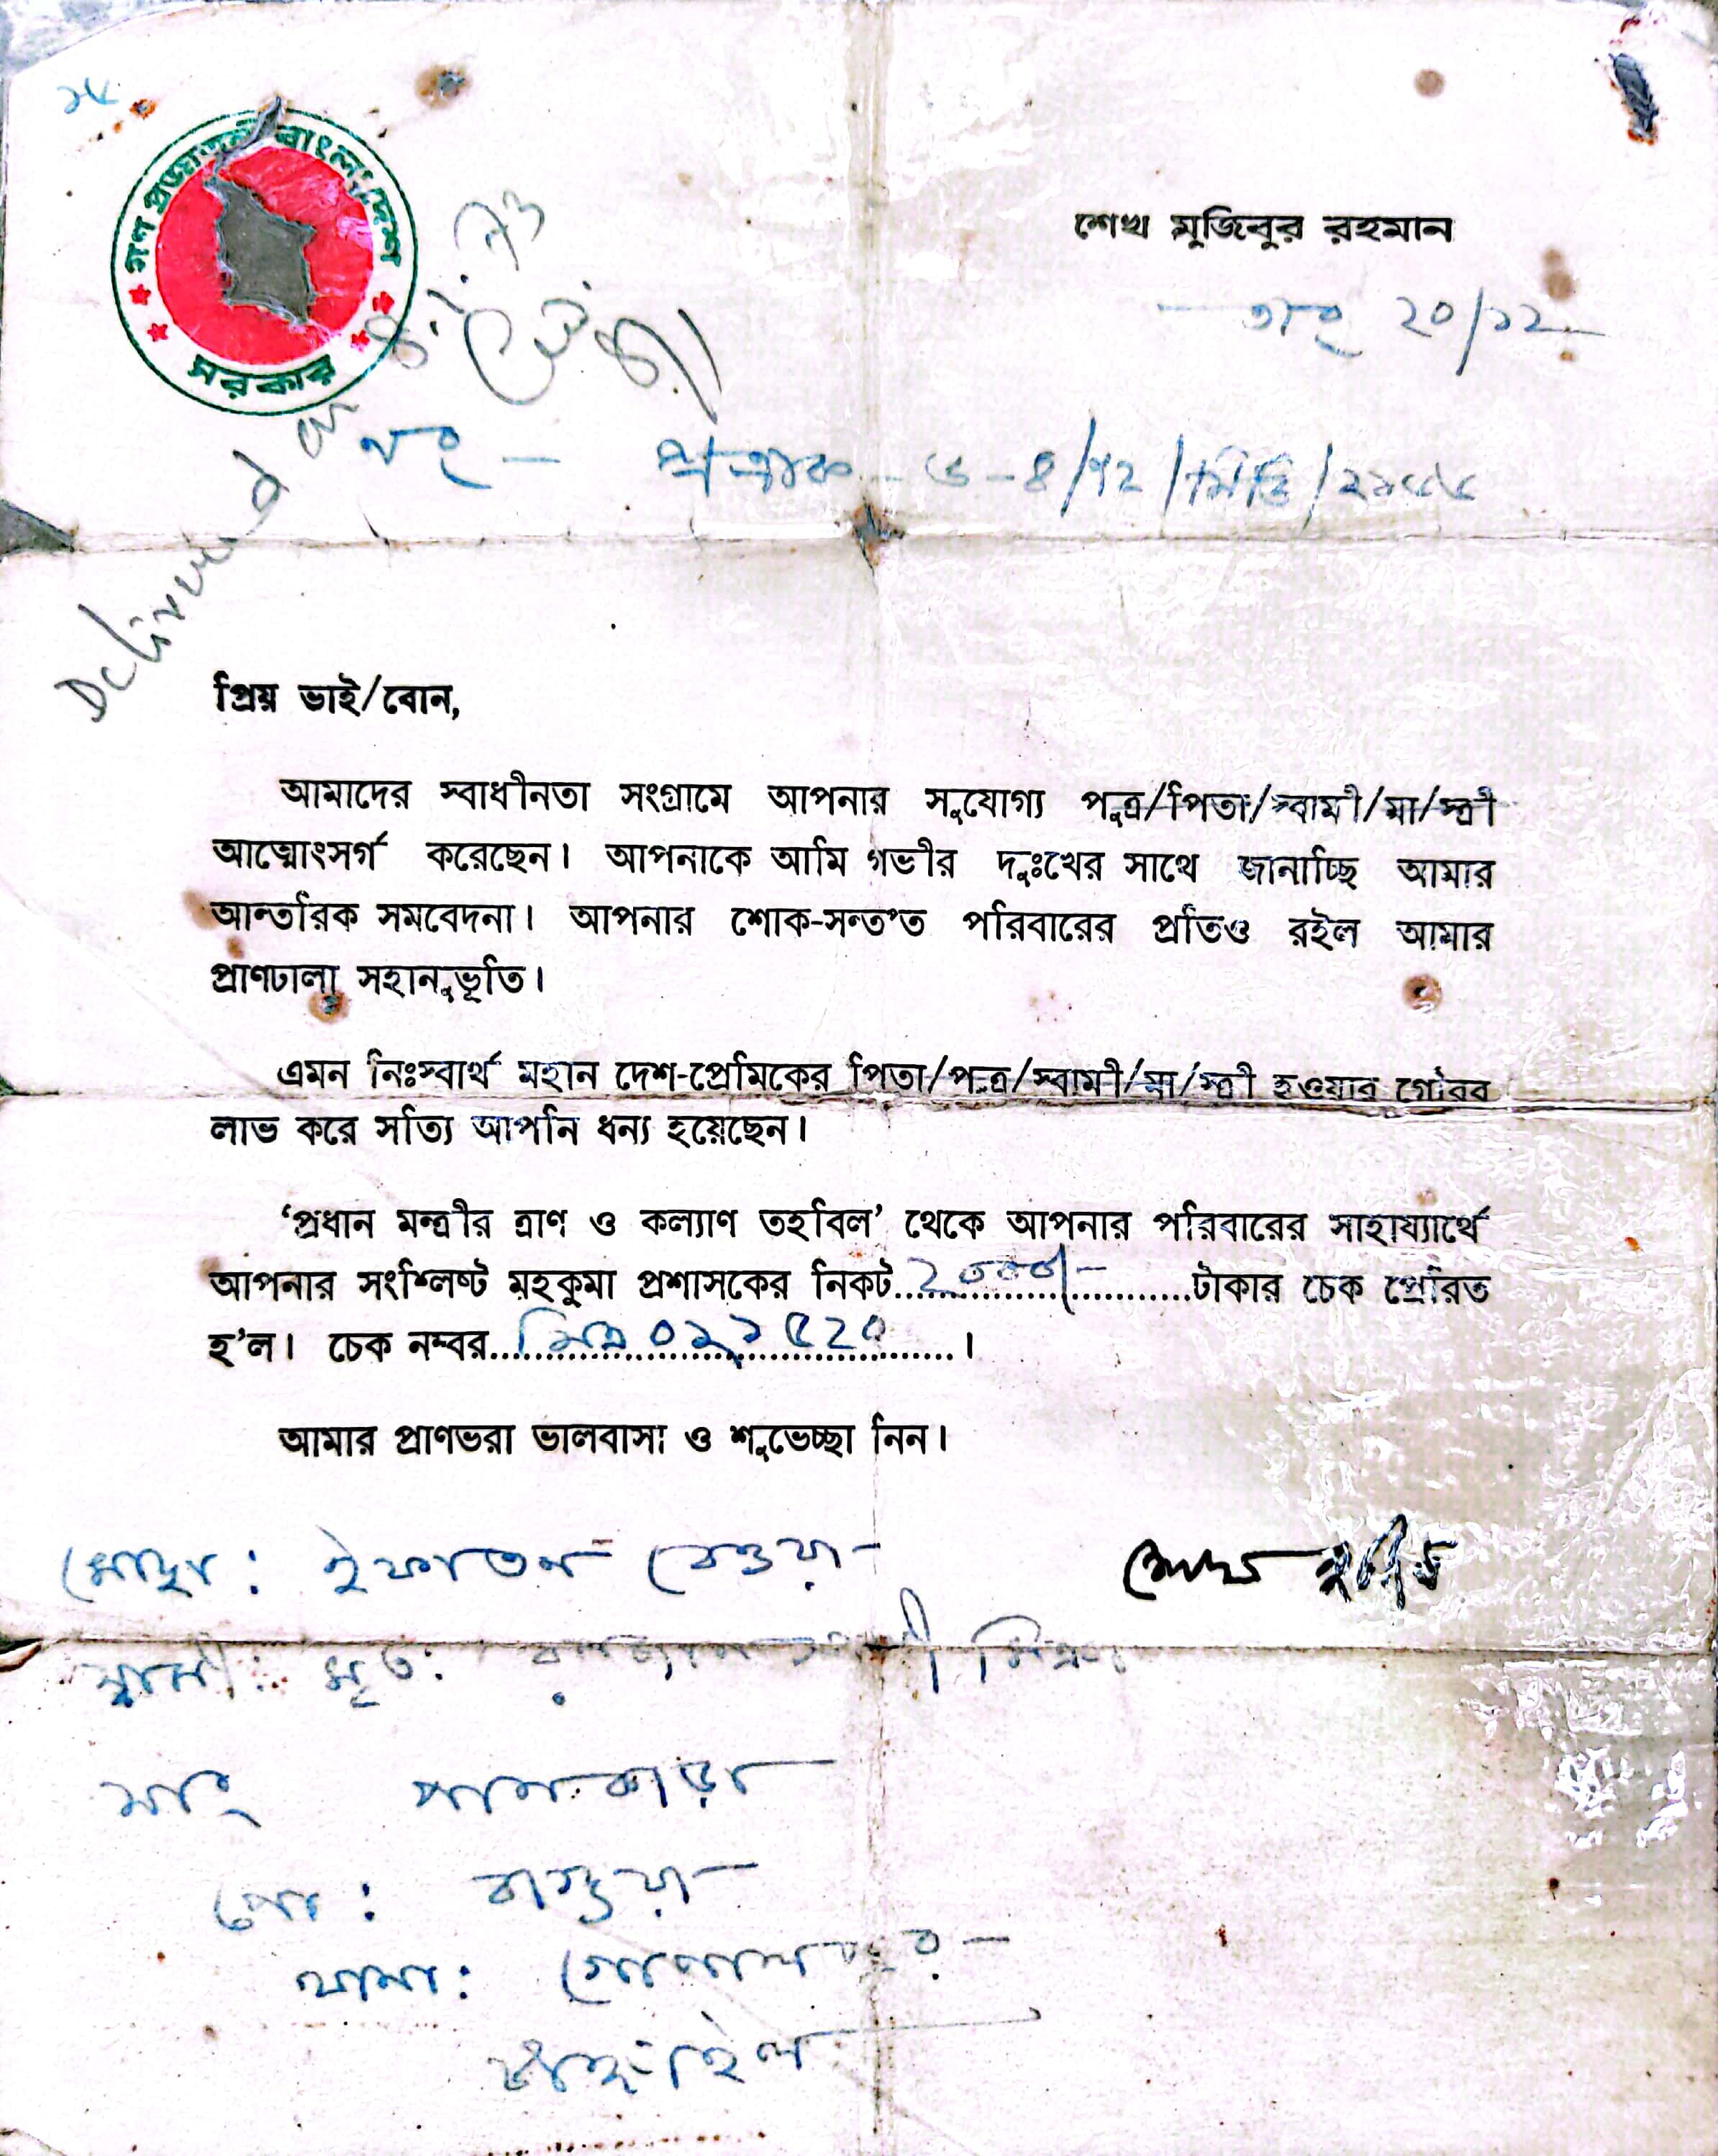 ১৮
গণ প্রজাতন্ত্রী বাংলাদেশ
সরকার
শেখ মুজিবুর রহমান
তাং ২০/১২
নং - প্রত্রাক - ৬ - ৪/৭২/সিডি/
Delivered
প্রিয় ভাই/বোন,
আমাদের স্বাধীনতা সংগ্রামে আপনার সুযোগ্য পুত্র/পিতা/স্বামী/মা/স্ত্রী
আত্মোৎসর্গ করেছেন। আপনাকে আমি গভীর দুঃখের সাথে জানাচ্ছি আমার
আন্তরিক সমবেদনা। আপনার শোক-সন্তপ্ত পরিবারের প্রতিও রইল আমার
প্রাণঢালা সহানুভূতি।
এমন নিঃস্বার্থ মহান দেশ-প্রেমিকের পিতা/পুত্র/স্বামী/মা/স্ত্রী হওয়ার গৌরব
লাভ করে সত্যি আপনি ধন্য হয়েছেন।
‘প্রধান মন্ত্রীর ত্রাণ ও কল্যাণ তহবিল’ থেকে আপনার পরিবারের সাহায্যার্থে
আপনার সংশ্লিষ্ট মহকুমা প্রশাসকের নিকট...২০০০/-...টাকার চেক প্রেরিত
হ'ল। চেক নম্বর...সিএ ০২১৫২০...।
আমার প্রাণভরা ভালবাসা ও শুভেচ্ছা নিন।
মোছাঃ ইফাতন বেওয়া
শেখ মুজিব
স্বামী: মৃত:
সাং পানকাড়া
পো: বাগুয়া
থানা: গোপালপুর
টাঙ্গাইল